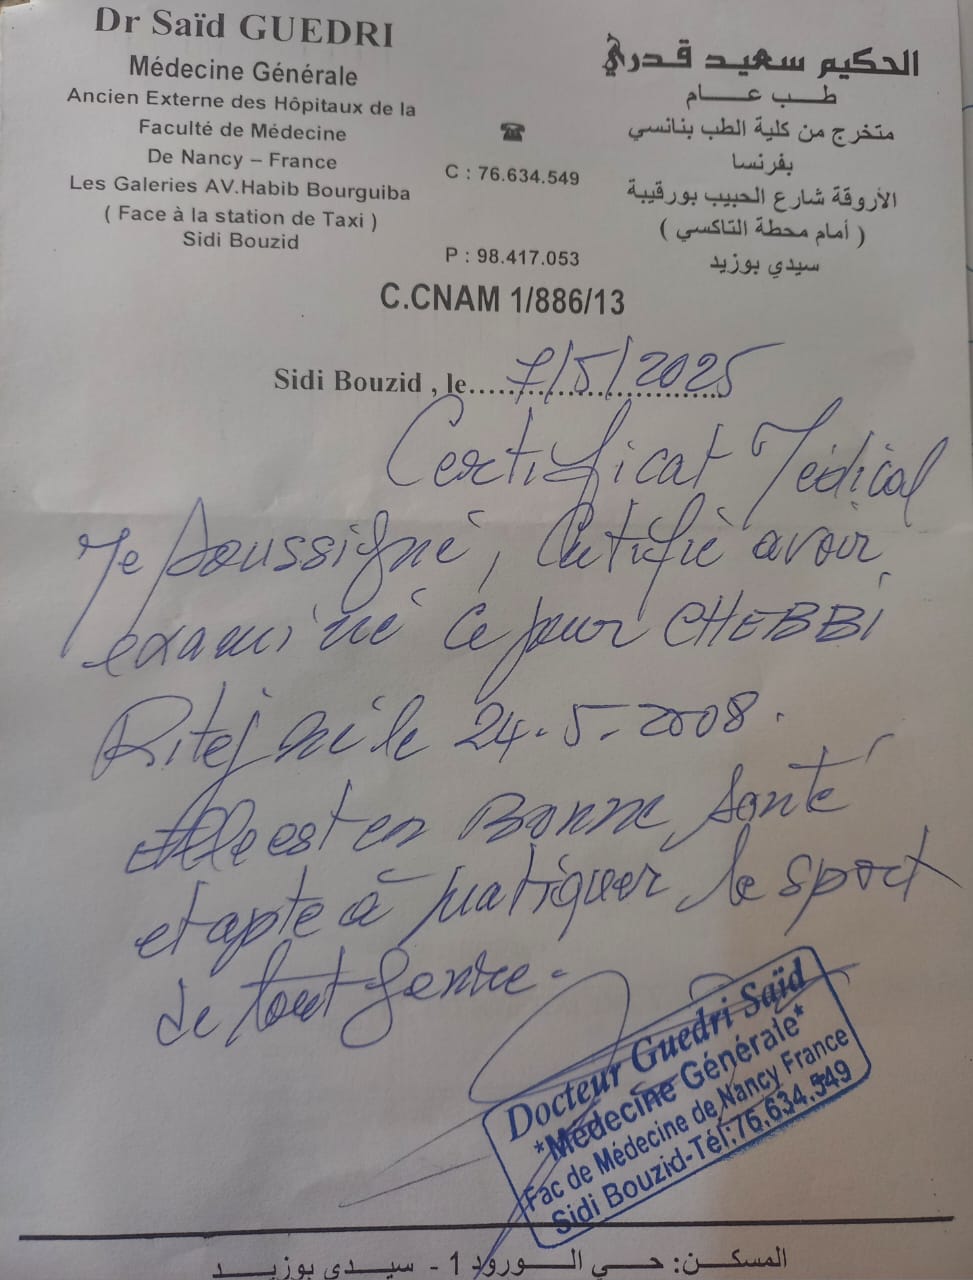 Dr Saïd GUEDRI
Médecine Générale
Ancien Externe des Hôpitaux de la
Faculté de Médecine
De Nancy – France
Les Galeries AV.Habib Bourguiba
( Face à la station de Taxi )
Sidi Bouzid
☎
C : 76.634.549
P : 98.417.053
الحكيم سعيد قدري
طب عام
متخرج من كلية الطب بنانسي
بفرنسا
الأروقة شارع الحبيب بورقيبة
( أمام محطة التاكسي )
سيدي بوزيد
C.CNAM 1/886/13
Sidi Bouzid , le 7/5/2025
Certificat Médical
Je soussigné, Certifie avoir
examiné ce jour CHEBBI
Ritej né le 24-5-2008.
Elle est en Bonne santé
et apte à pratiquer le sport
de tout genre.
Docteur Guedri Saïd
*Médecine Générale*
Fac de Médecine de Nancy France
Sidi Bouzid-Tél:76.634.549
المسكن: حي الورود 1 - سيدي بوزيد